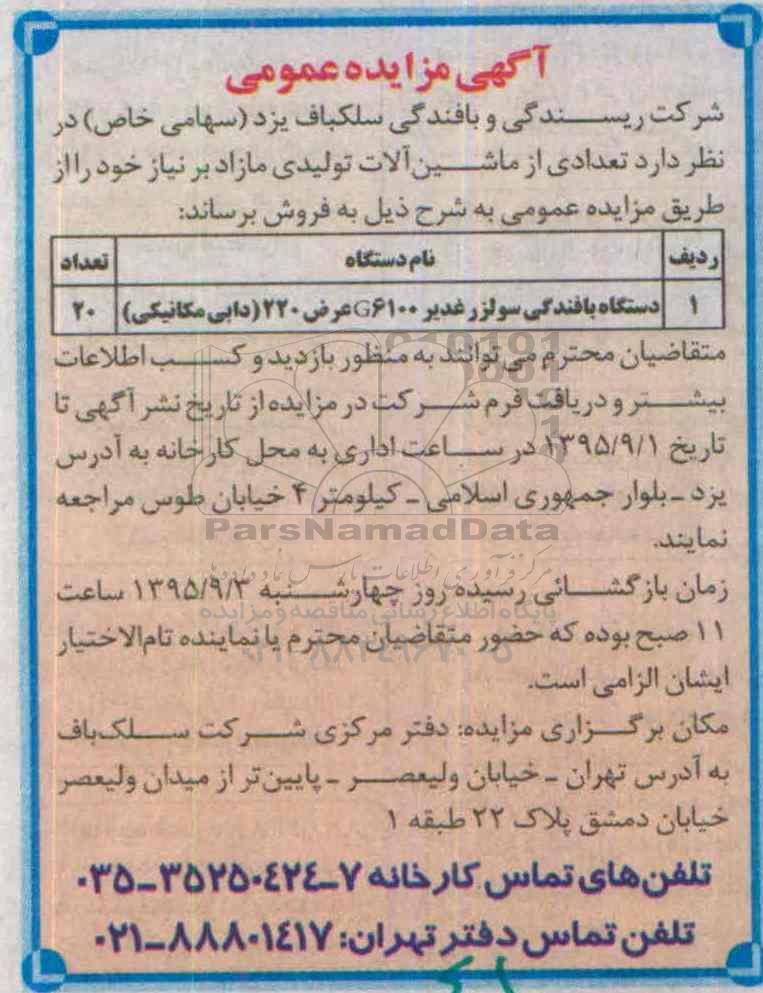 آگهی مزایده عمومی
شرکت ریسندگی و بافندگی سلکباف یزد (سهامی خاص) در
نظر دارد تعدادی از ماشین‌آلات تولیدی مازاد بر نیاز خود را از
طریق مزایده عمومی به شرح ذیل به فروش برساند:
ردیف نام دستگاه تعداد
۱ دستگاه بافندگی سولزر غدیر G۶۱۰۰ عرض ۲۲۰ (دابی مکانیکی) ۲۰
متقاضیان محترم می‌توانند به منظور بازدید و کسب اطلاعات
بیشتر و دریافت فرم شرکت در مزایده از تاریخ نشر آگهی تا
تاریخ ۱۳۹۵/۹/۱ در ساعت اداری به محل کارخانه به آدرس
یزد ـ بلوار جمهوری اسلامی ـ کیلومتر ۴ خیابان طوس مراجعه
ParsNamadData
نمایند.
مرکز فرآوری اطلاعات پارس نماد داده‌ها
زمان بازگشائی رسیده روز چهارشنبه ۱۳۹۵/۹/۳ ساعت
پایگاه اطلاع رسانی مناقصه و مزایده
۱۱ صبح بوده که حضور متقاضیان محترم یا نماینده تام‌الاختیار
ایشان الزامی است.
مکان برگزاری مزایده: دفتر مرکزی شرکت سلک‌باف
به آدرس تهران ـ خیابان ولیعصر ـ پایین‌تر از میدان ولیعصر
خیابان دمشق پلاک ۲۲ طبقه ۱
تلفن‌های تماس کارخانه ۷-۳۵۲۵۰۴۲۴-۰۳۵
تلفن تماس دفتر تهران: ۸۸۸۰۱۴۱۷-۰۲۱